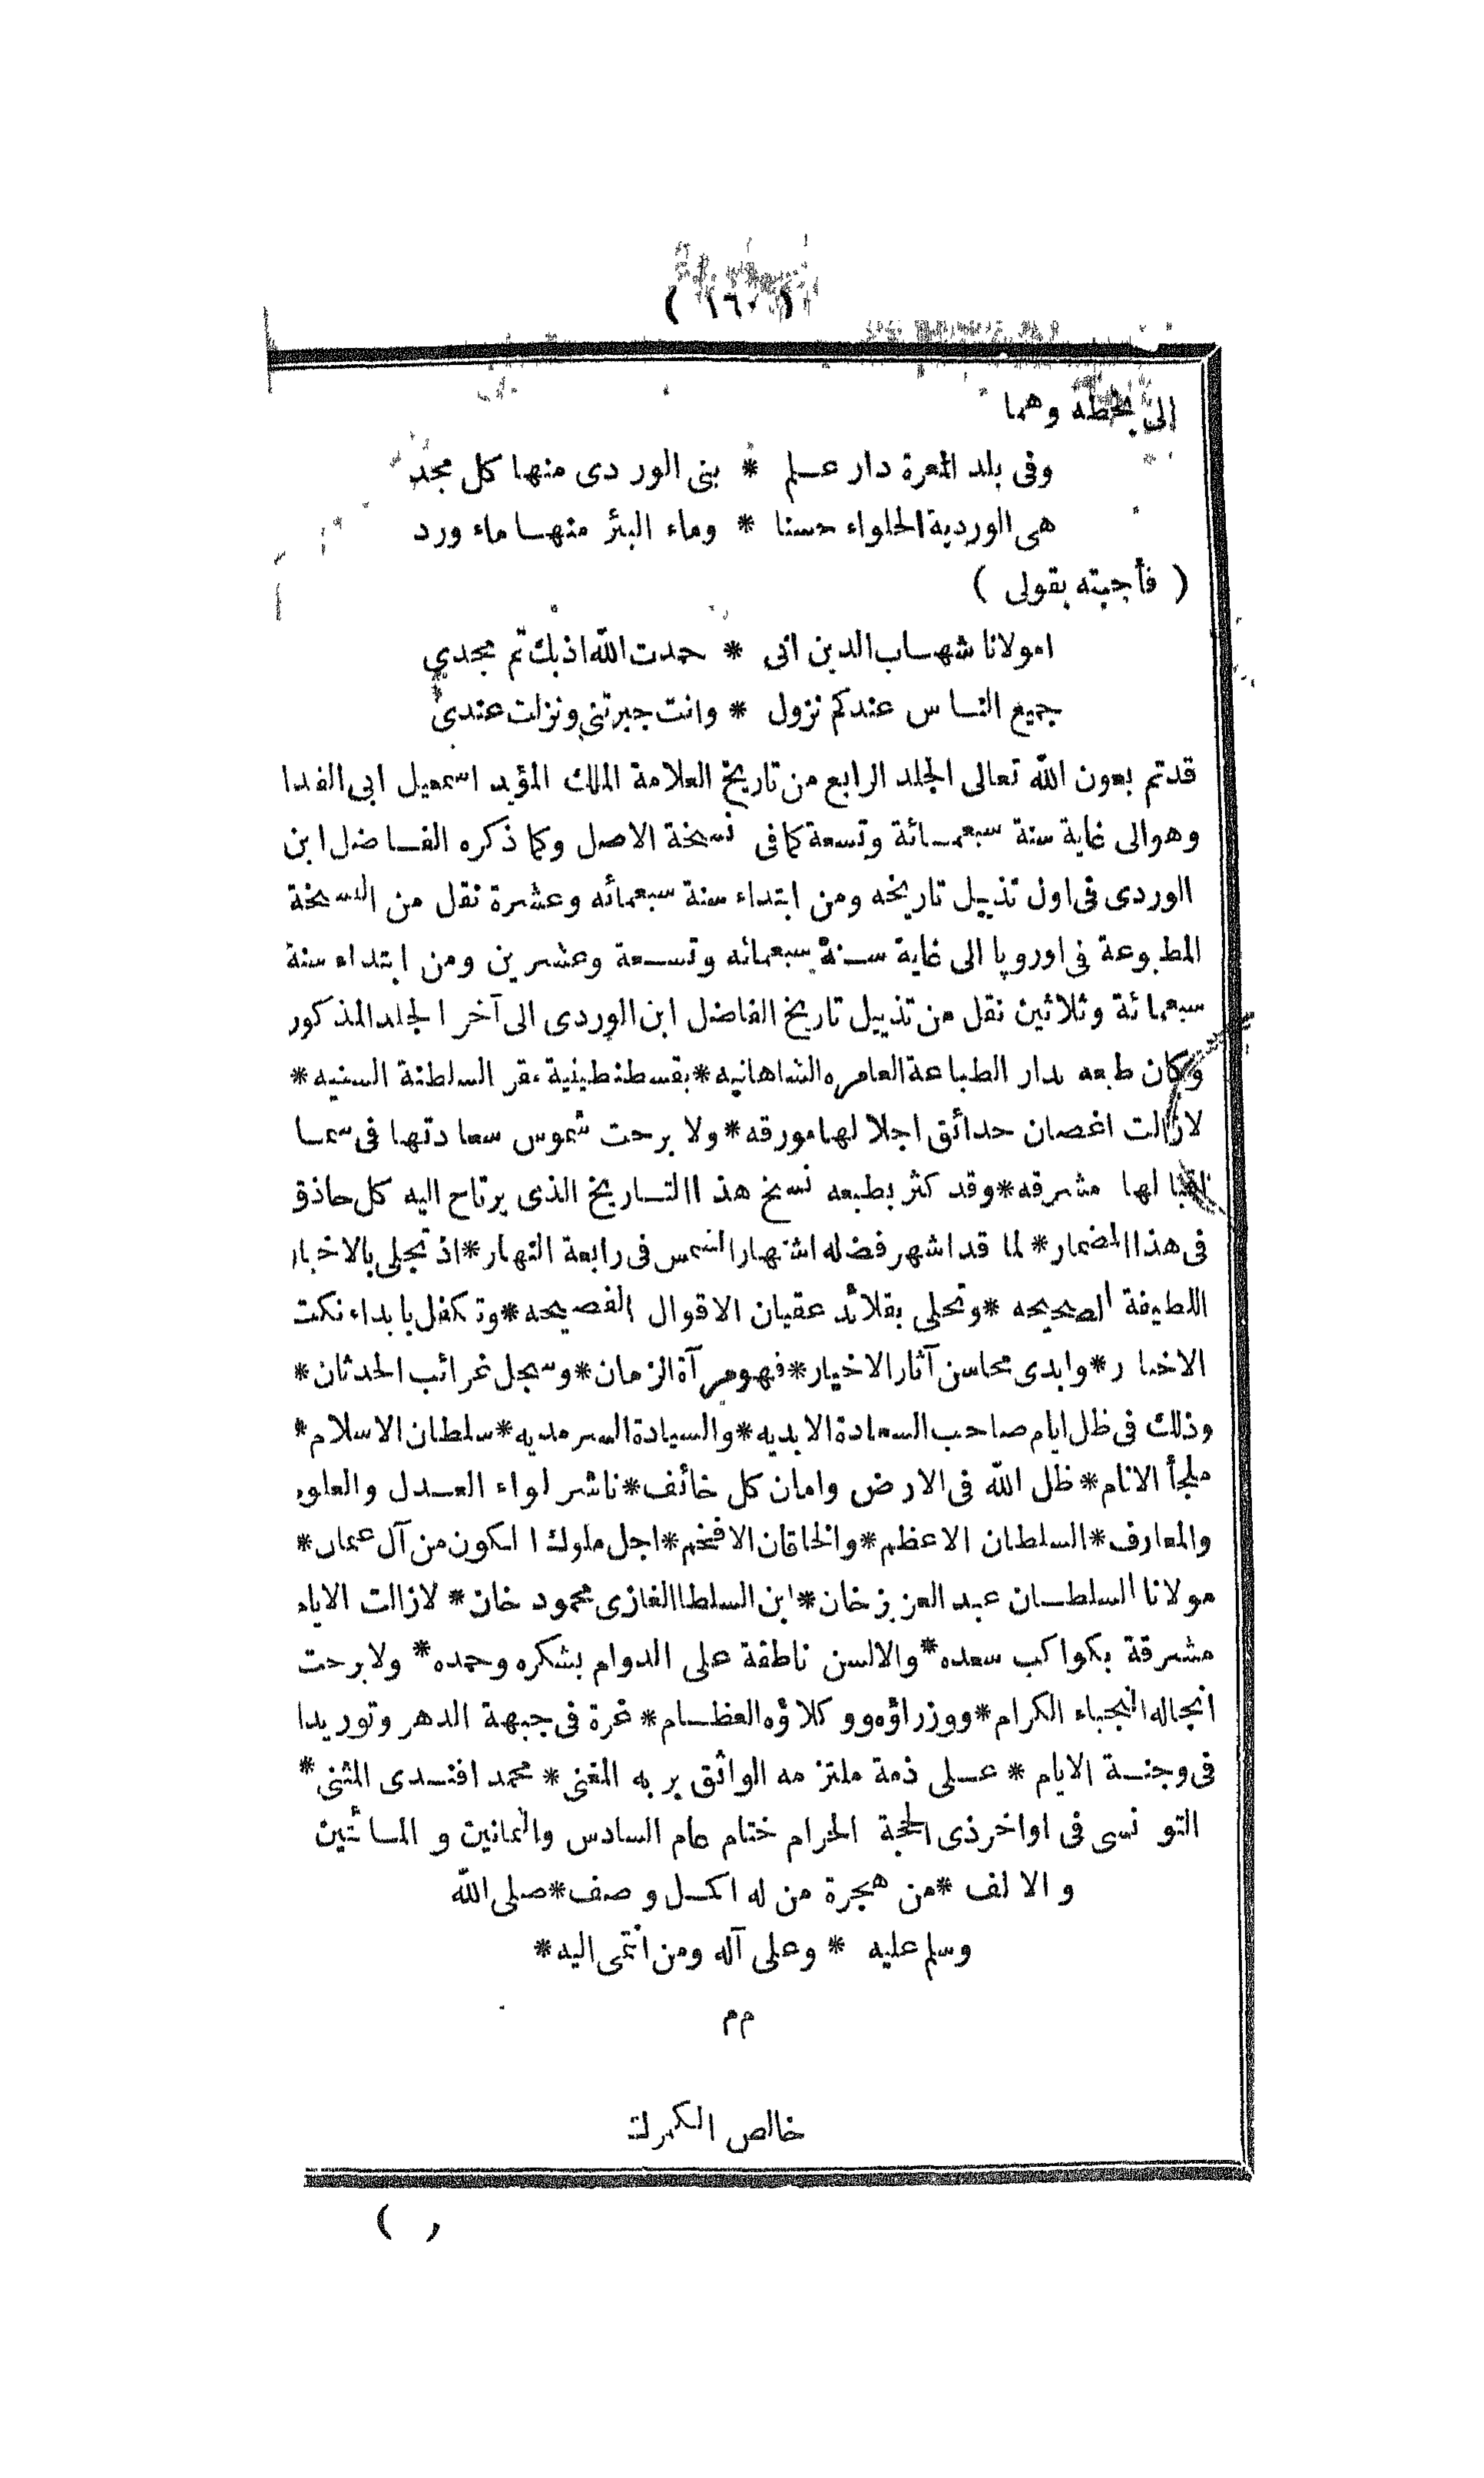 (١٦٠)
الى بخطه وهما
وفى بلد المعرة دار عـلم * بنى الوردى منها كل مجد
هى الوردية الحلواء حسنا * وماء البئر منهـا ماء ورد
( فأجبته بقولى )
امولانا شهـاب الدين انى * حمدت الله اذ بك تم مجدي
جميع النـاس عندكم نزول * وانت جبرتنى ونزلت عندى
قدتم بعون الله تعالى الجلد الرابع من تاريخ العلامة الملك المؤيد اسمعيل ابى الفدا
وهو الى غاية سنة سبعمـائة وتسعة كما فى نسخة الاصل وكما ذكره الفـاضل ابن
الوردى فى اول تذييل تاريخه ومن ابتداء سنة سبعمائه وعشرة نقل من النسخة
المطبوعة فى اوروپا الى غاية سـنة سبعمائه وتسـعة وعشرين ومن ابتداء سنة
سبعمائة وثلاثين نقل من تذييل تاريخ الفاضل ابن الوردى الى آخر الجلد المذكور
وكان طبعه بدار الطباعة العامره الشاهانيه * بقسطنطينية مقر السلطنة السنيه *
لازالت اغصان حدائق اجلالها مورقه * ولا برحت شموس سعادتها فى سمـا
اقبالها مشرقه * وقد كثر بطبعه نسخ هذا التـاريخ الذى يرتاح اليه كل حاذق
فى هذا المضمار * لما قد اشهر فضله اشتهار الشمس فى رابعة النهار * اذ تجلى بالاخبار
اللطيفة الصحيحه * وتحلى بقلائد عقيان الاقوال الفصيحه * وتكفل بابداء نكت
الاخبار * وابدى محاسن آثار الاخيار * فهو مرآة الزمان * وسجل غرائب الحدثان *
وذلك فى ظل ايام صاحب السعادة الابديه * والسيادة السرمديه * سلطان الاسلام *
ملجأ الانام * ظل الله فى الارض وامان كل خائف * ناشر لواء العـدل والعلوم
والمعارف * السلطان الاعظم * والخاقان الافخم * اجل ملوك الكون من آل عثمان *
مولانا السلطـان عبد العزيز خان * ابن السلطا الغازى محمود خان * لازالت الايام
مشرقة بكواكب سعده * والالسن ناطقة على الدوام بشكره وحمده * ولا برحت
انجاله النجباء الكرام * ووزراؤه ووكلاؤه العظـام * غرة فى جبهة الدهر وتوريدا
فى وجنـة الايام * عـلى ذمة ملتزمه الواثق بربه المغنى * محمد افنـدى المثنى *
التونسى فى اواخر ذى الحجة الحرام ختام عام السادس والثمانين و المـأتين
والالف * من هجرة من له اكـمل وصف * صلى الله
وسلم عليه * وعلى آله ومن انتمى اليه *
م م
خالص الكمرك
( )